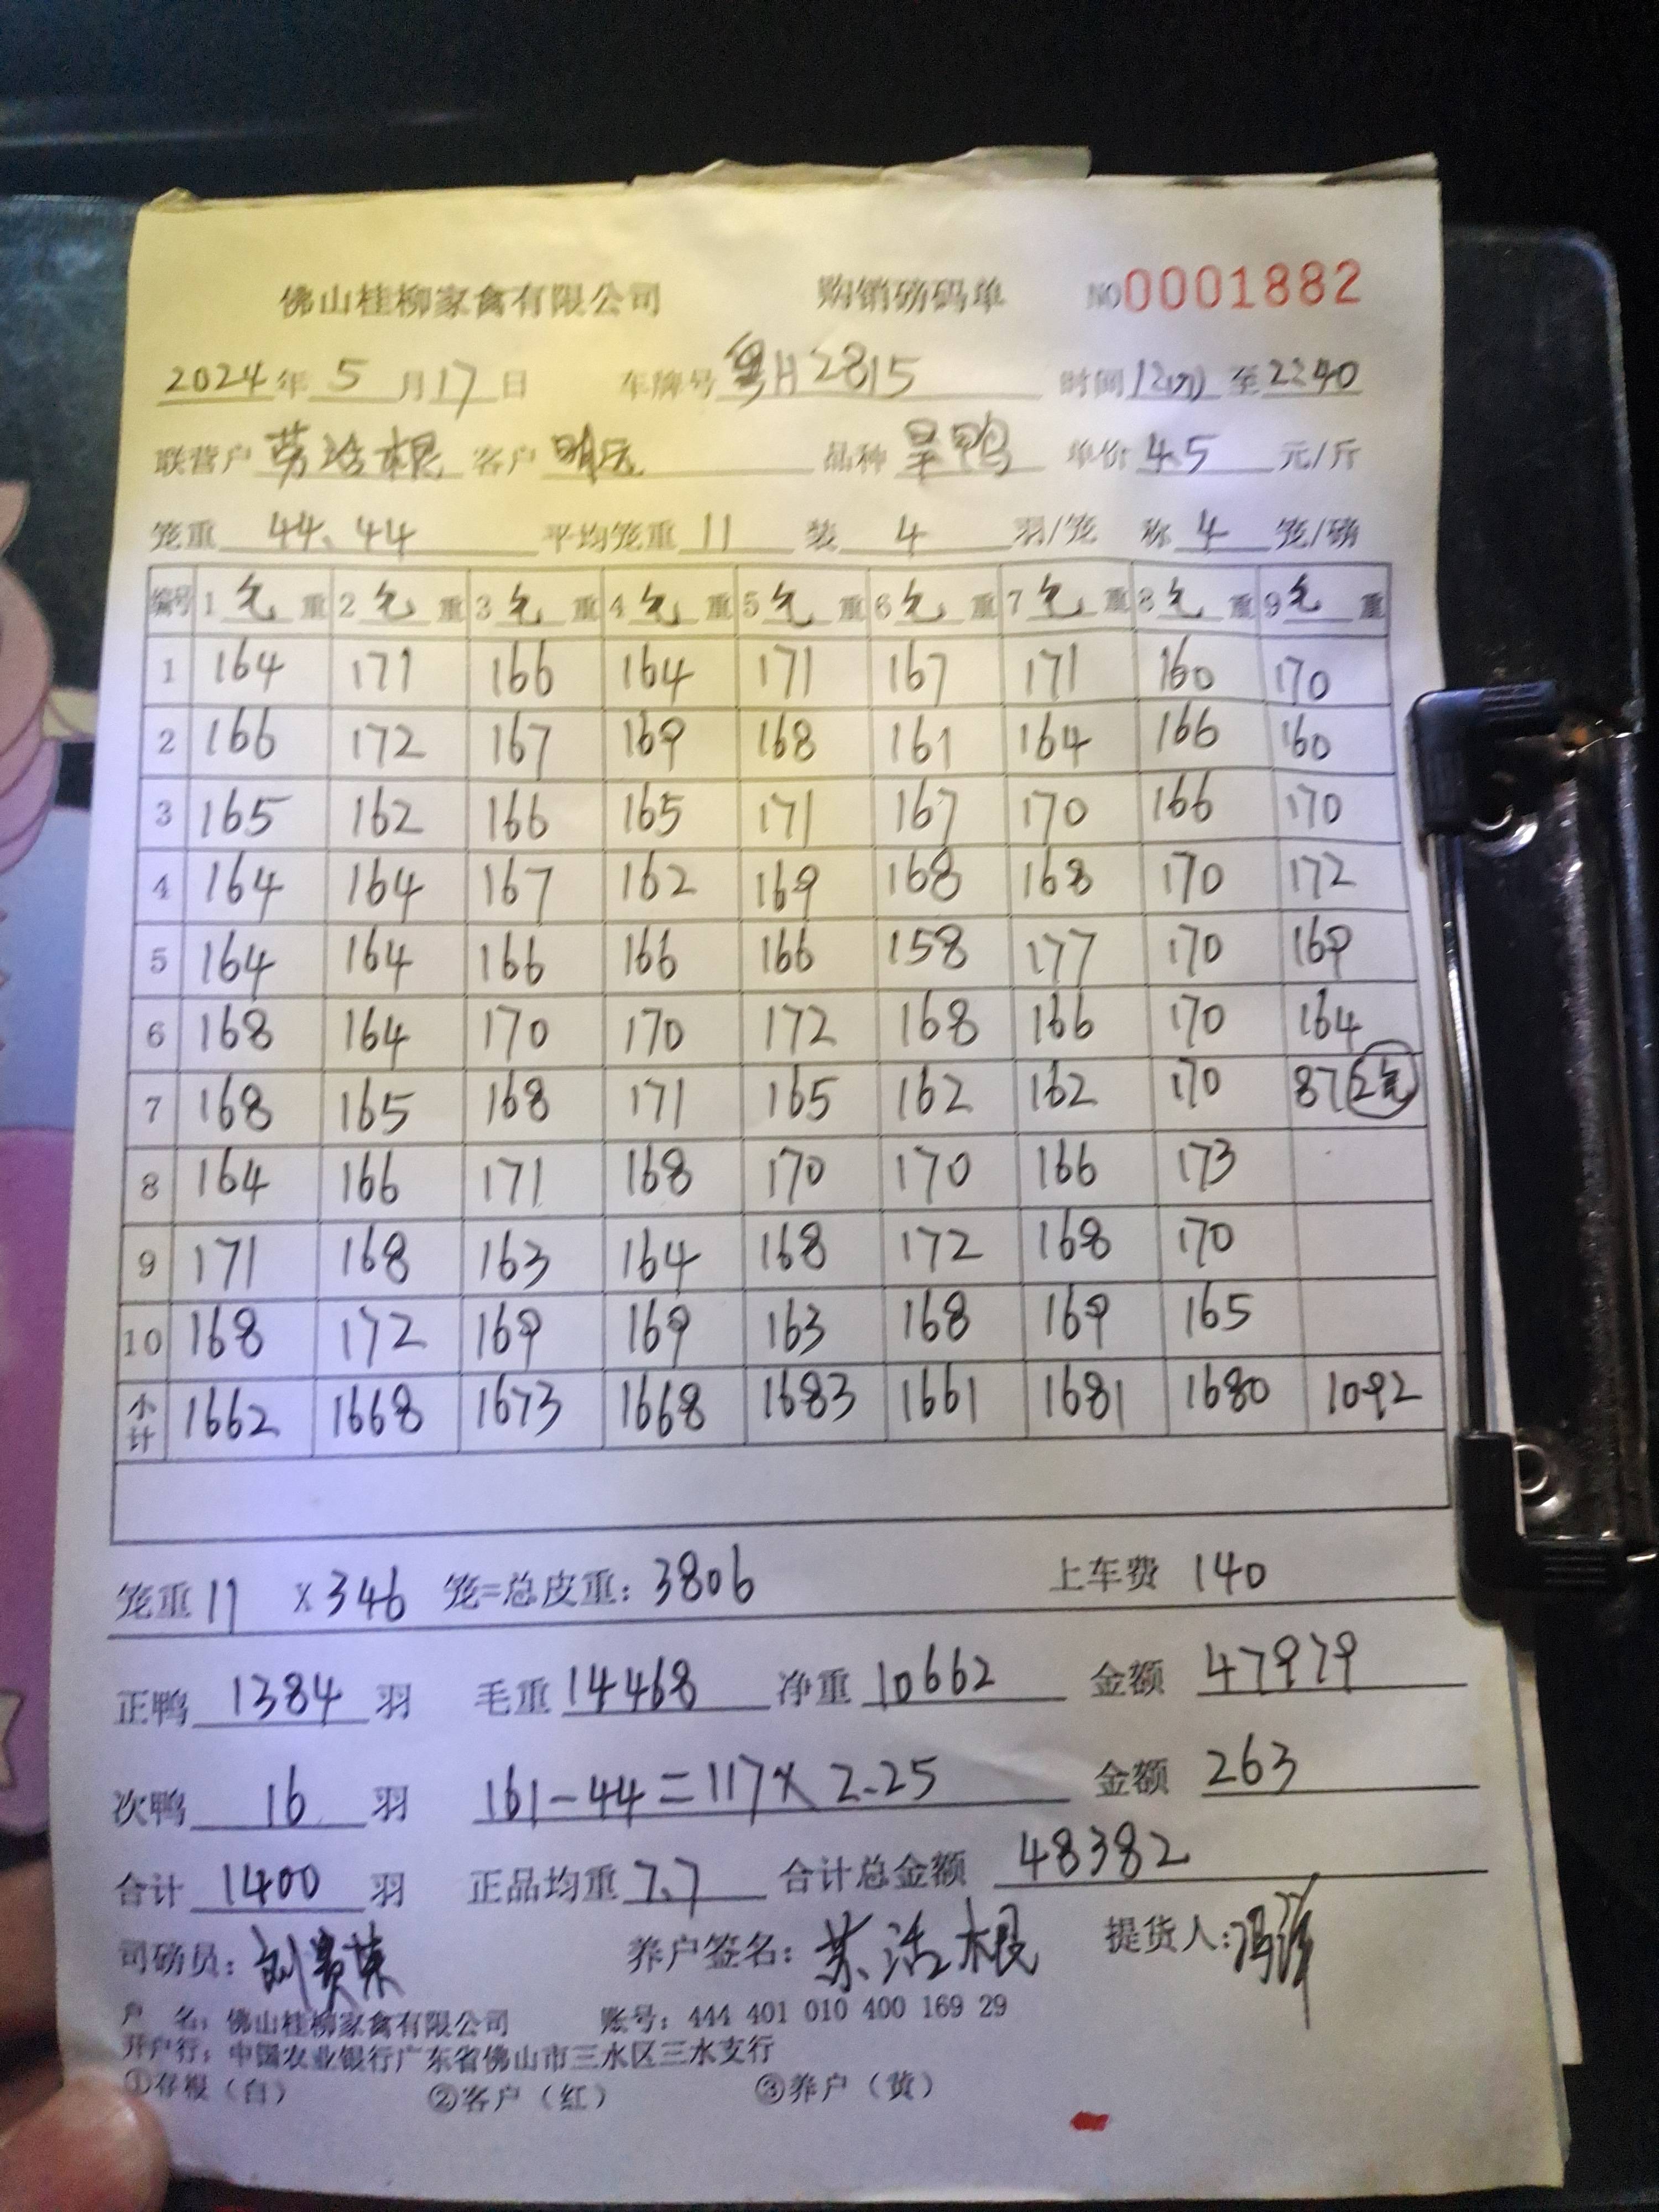 佛山桂柳家禽有限公司 购销磅码单 NO0001882
2024年5月17日 车牌号粤H2815 时间 至2240
联营户 苏活根 客户 明记 品种 旱鸭 单价4.5元/斤
笼重 44、44 平均笼重 11 装 4 羽/笼 称 4 笼/磅
编号 1 毛 重 2 毛 重 3 毛 重 4 毛 重 5 毛 重 6 毛 重 7 毛 重 8 毛 重 9 毛 重
1 164 171 166 164 171 167 171 160 170
2 166 172 167 169 168 161 164 166 160
3 165 162 166 165 171 167 170 166 170
4 164 164 167 162 169 168 168 170 172
5 164 164 166 166 166 158 177 170 169
6 168 164 170 170 172 168 166 170 164
7 168 165 168 171 165 162 162 170 87 2笼
8 164 166 171 168 170 170 166 173
9 171 168 163 164 168 172 168 170
10 168 172 169 169 163 168 169 165
小计 1662 1668 1673 1668 1683 1661 1681 1680 1092
笼重 11 X 346 笼=总皮重：3806 上车费 140
正鸭 1384 羽 毛重 14468 净重 10662 金额 47979
次鸭 16 羽 161-44=117X2.25 金额 263
合计 1400 羽 正品均重 7.7 合计总金额 48382
司磅员： 养户签名：苏活根 提货人：
户 名：佛山桂柳家禽有限公司 账号：444 401 010 400 169 29
开户行：中国农业银行广东省佛山市三水区三水支行
①存根（白） ②客户（红） ③养户（黄）